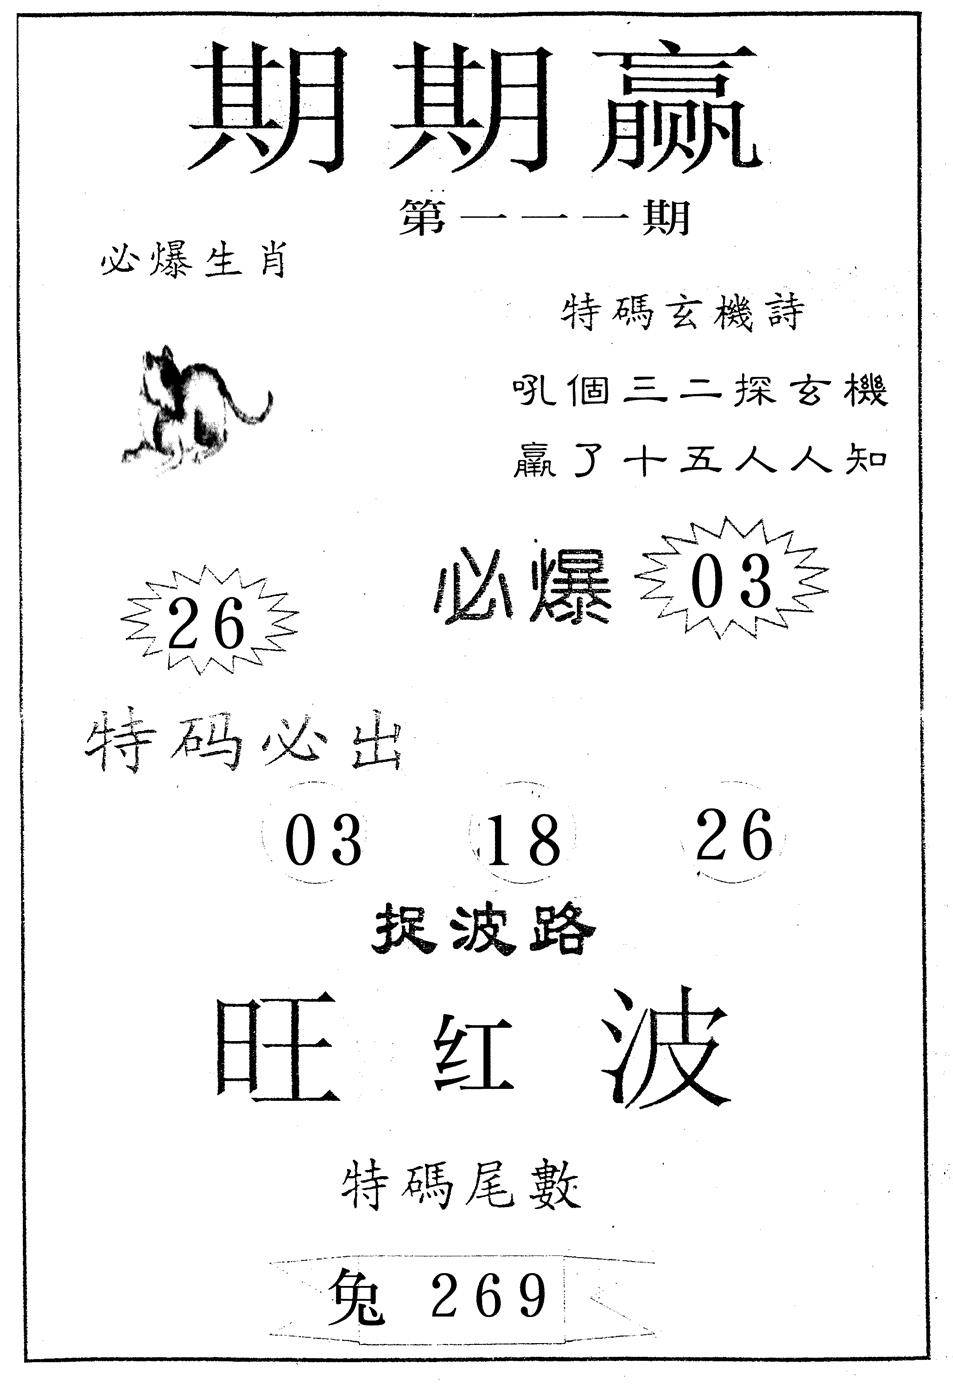 期期赢
第一一一期
必爆生肖
特碼玄機詩
吼個三二探玄機
贏了十五人人知
必爆 03
26
特码必出
03 18 26
捉波路
旺红波
特碼尾數
兔 269